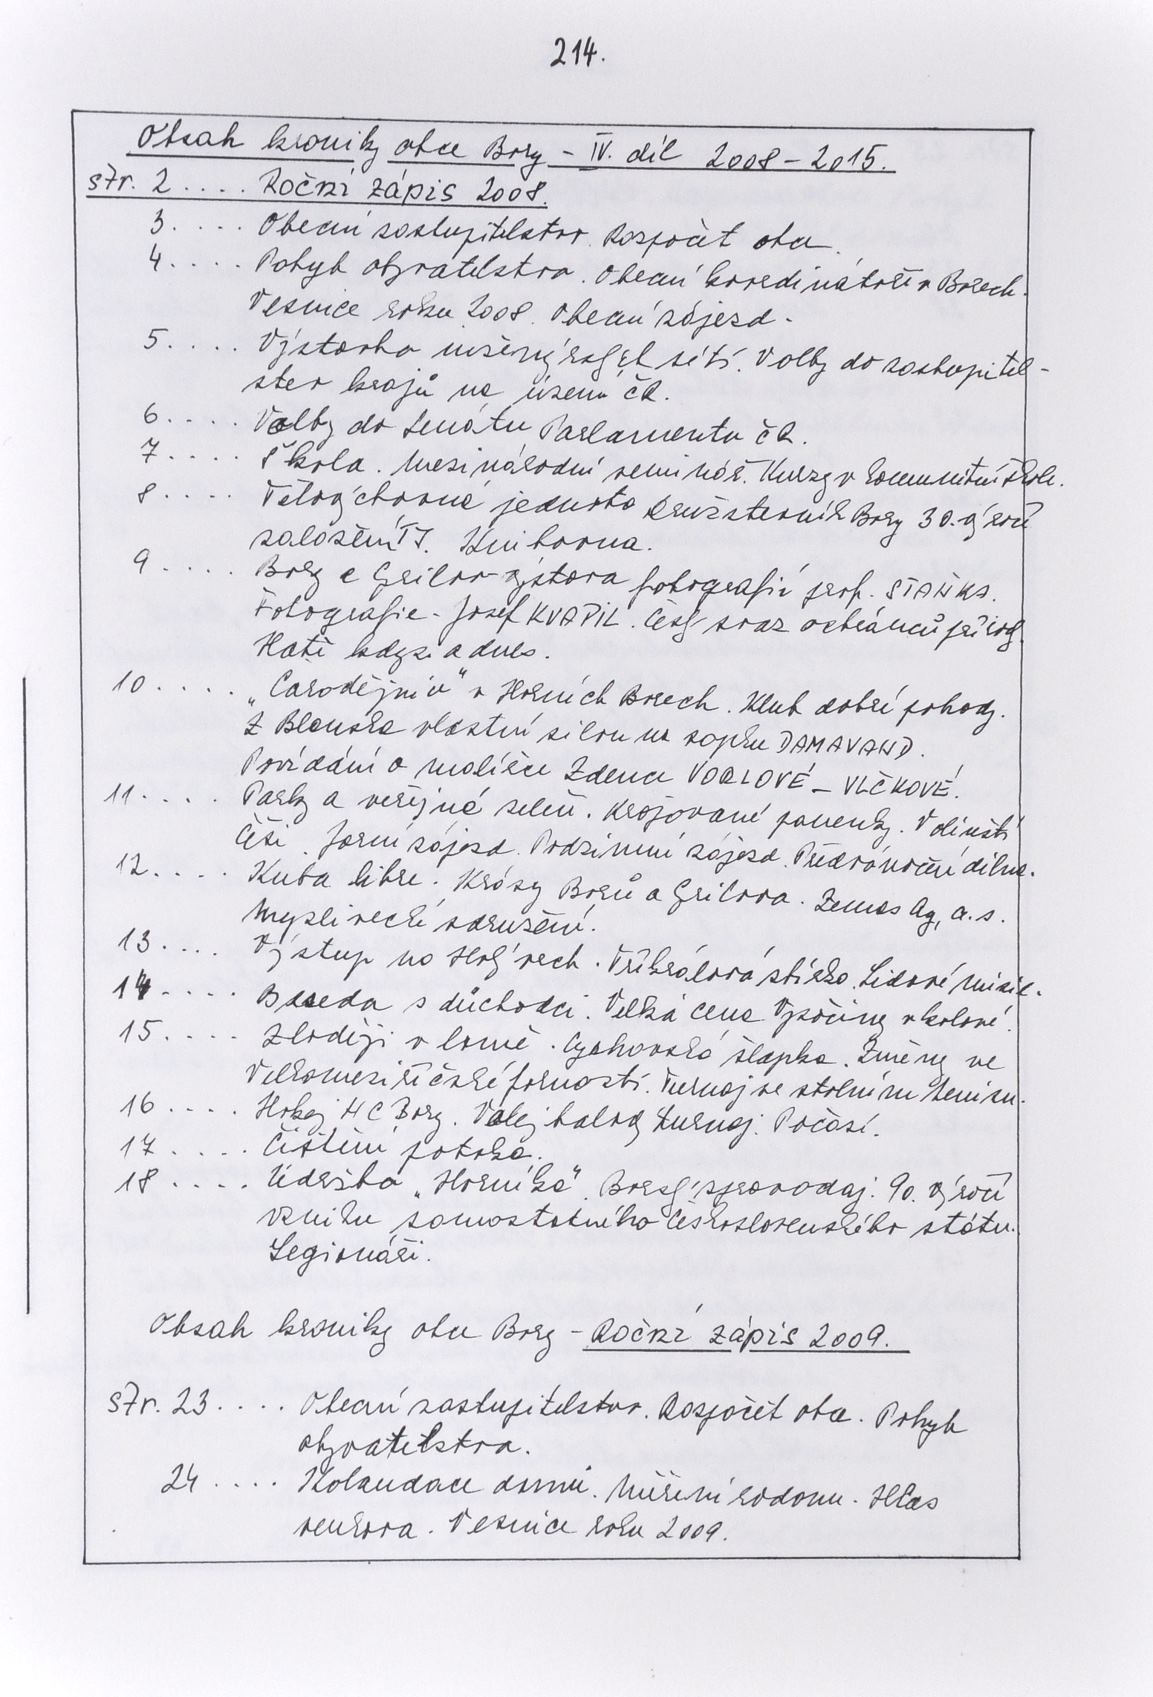 214.
Obsah kroniky obce Bory - IV. díl 2008 - 2015.
str. 2 .... Roční zápis 2008.
3 .... Obecní zastupitelstvo. Rozpočet obce.
4 .... Pohyb obyvatelstva. Obecní koordinátoři v Borech.
Vesnice roku 2008. Obecní zájezd.
5 .... Výstavba inženýrských sítí. Volby do zastupitel-
stev krajů na území ČR.
6 .... Volby do Senátu Parlamentu ČR.
7 .... Škola. Mezinárodní seminář. Kurzy v komunitní škole.
8 .... Tělovýchovná jednota Družstevník Bory 30. výročí
založení TJ. Knihovna.
9 .... Bory a Cyrilov - výstava fotografií prof. STAŇKA.
Fotografie - Josef KVAPIL. Český svaz ochránců přírody.
Hatě kdysi a dnes.
10 .... "Čarodějnice" v Horních Borech. Klub dobré pohody.
Z Blenska vlastní silou na sopku DAMAVAND.
Povídání o malířce Zdence VORLOVÉ - VLČKOVÉ.
11 .... Parky a veřejná zeleň. Krojované panenky. Volínští
Češi. Jarní zájezd. Podzimní zájezd. Předvánoční dílna.
12 .... Kuba libre. Krásy Borů a Cyrilova. Zemas Ag, a.s.
Myslivecké sdružení.
13 .... Výstup na Holý vrch. Tříkrálová sbírka. Lidové misie.
14 .... Beseda s důchodci. Velká cena Vysočiny v kolové.
15 .... Zloději v lomě. Cyklovská šlapka. Změny ve
Velkomeziříčské farnosti. Turnaj ve stolním tenisu.
16 .... Hokej HC Bory. Volejbalový turnaj. Počasí.
17 .... Čištění potoka.
18 .... Údržba "Horníka". Borský zpravodaj. 90. výročí
vzniku samostatného Československého státu.
Legionáři.
Obsah kroniky obce Bory - Roční zápis 2009.
str. 23 .... Obecní zastupitelstvo. Rozpočet obce. Pohyb
obyvatelstva.
24 .... Kolaudace domů. Měření radonu. Hlas
venkova. Vesnice roku 2009.